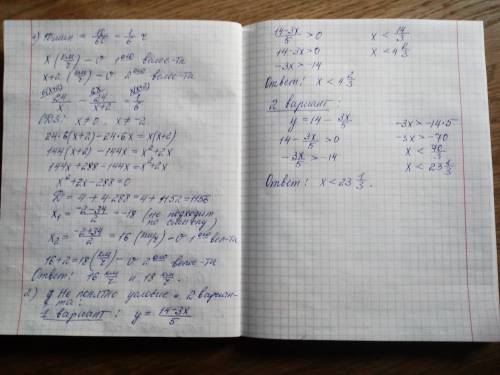 1) 10 мин = 10/60 = 1/6 ч
x (км/ч) – v 1ого велос-та
x+2 (км/ч) – v 2ого велос-та
24/x − 24/(x+2) = 1/6
ОДЗ: x ≠ 0, x ≠ −2
24·6(x+2) − 24·6x = x(x+2)
144(x+2) − 144x = x²+2x
144x + 288 − 144x = x²+2x
x² + 2x − 288 = 0
D = 4 + 4·288 = 4 + 1152 = 1156
x₁ = (−2−34)/2 = −18 (не подходит по смыслу)
x₂ = (−2+34)/2 = 16 (км/ч) – v 1ого вел-та
16+2 = 18 (км/ч) – v 2ого велос-та
Ответ: 16 км/ч и 18 км/ч.
2) Не понятно условие, 2 вариан-
та:
1 вариант: y = (14−3x)/5
(14−3x)/5 > 0
14−3x > 0
−3x > −14
x < 14/3
x < 4 2/3
Ответ: x < 4 2/3
2 вариант:
y = 14 − 3x/5
14 − 3x/5 > 0
−3x/5 > −14
−3x > −14·5
−3x > −70
x < 70/3
x < 23 1/3
Ответ: x < 23 1/3.